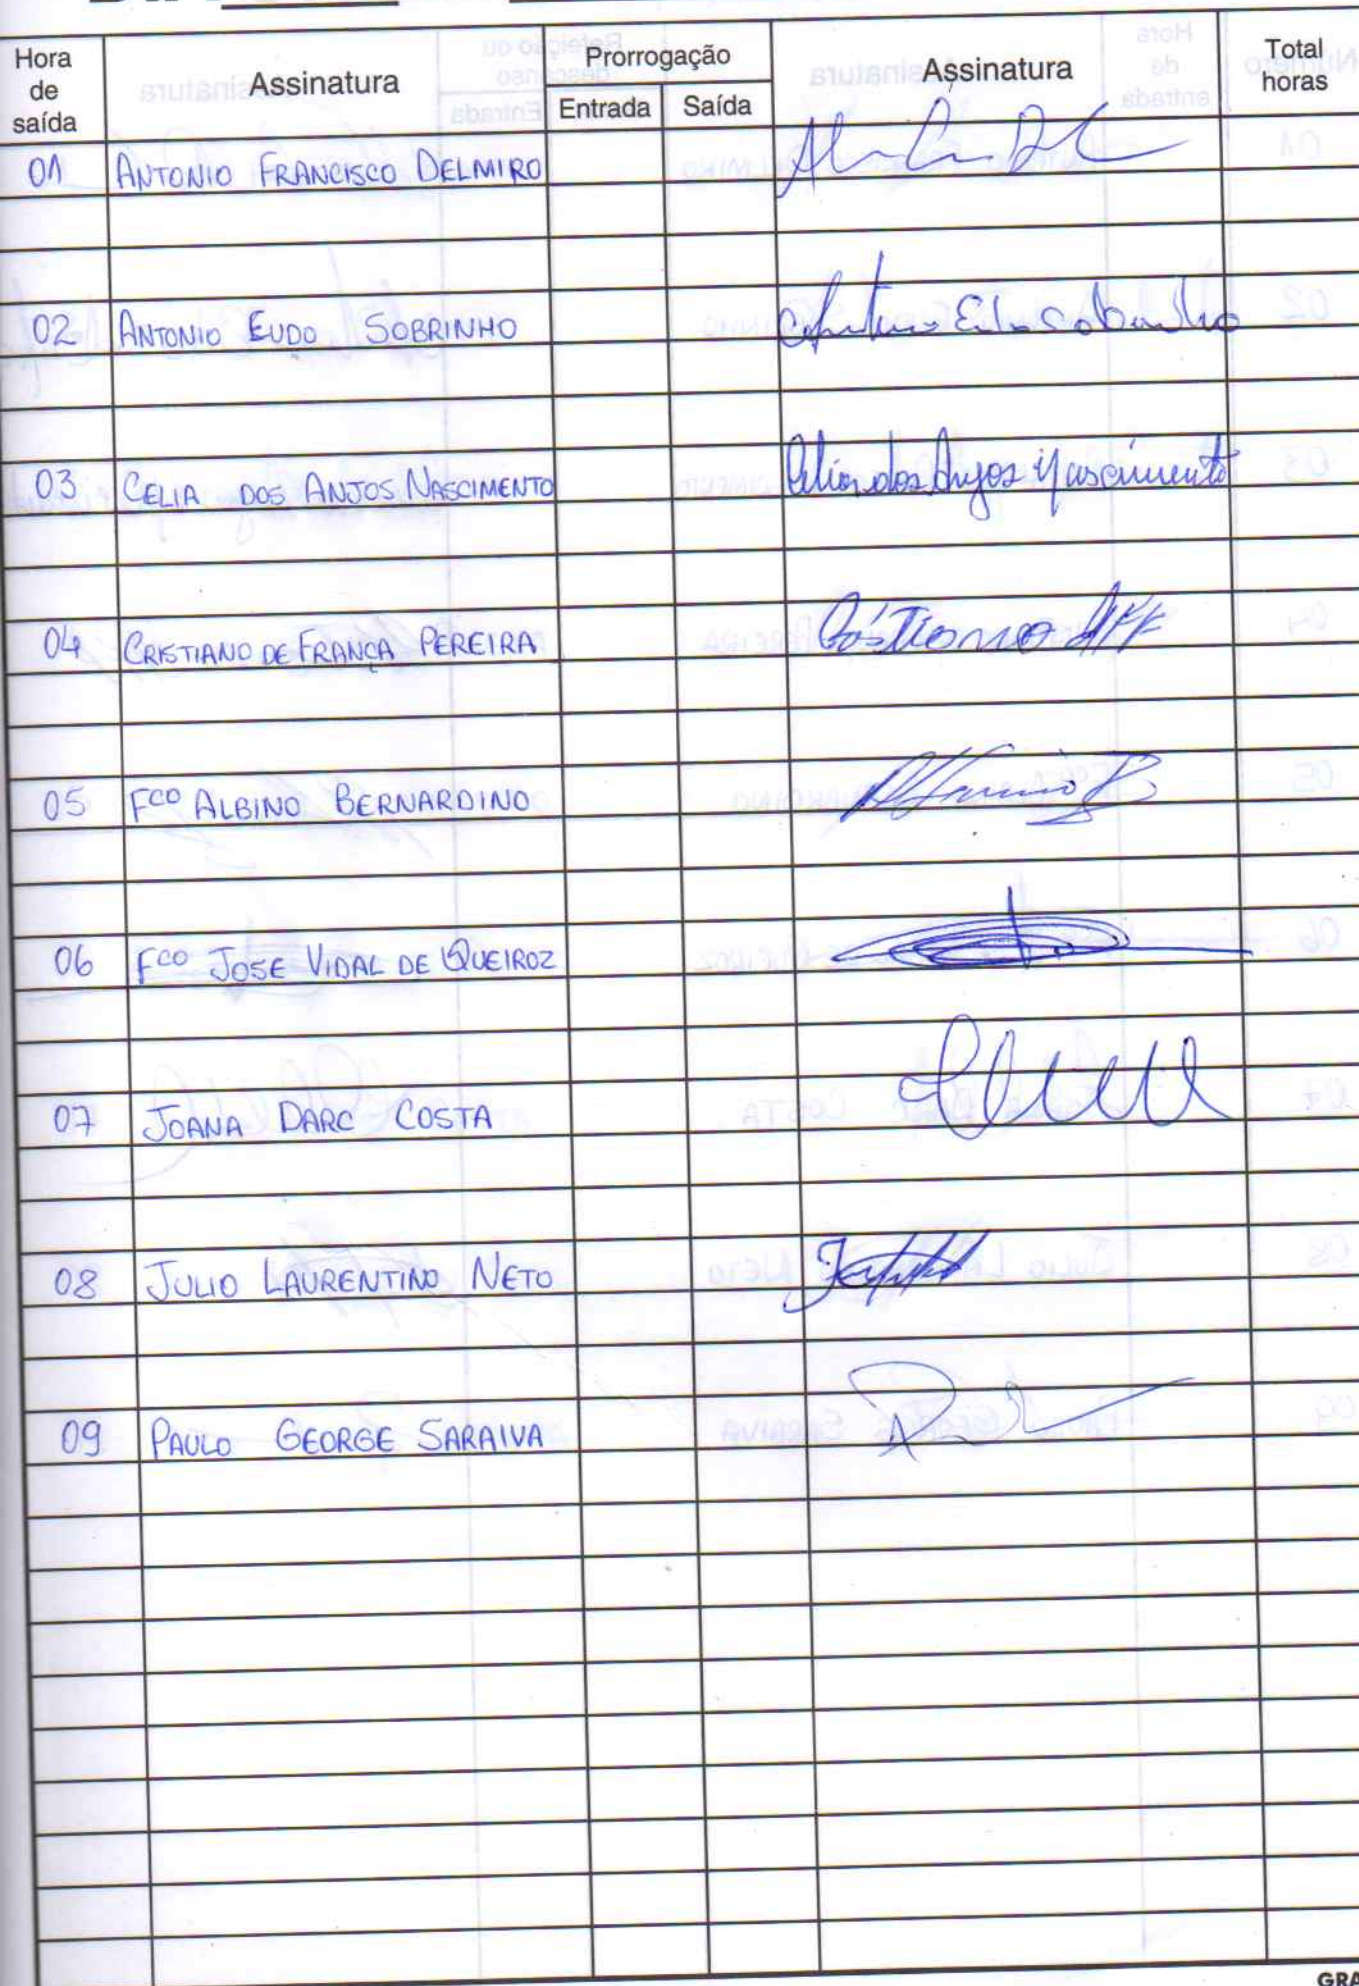 Hora de saída Assinatura Prorrogação Entrada Saída Assinatura Total horas
01 ANTONIO FRANCISCO DELMIRO
02 ANTONIO EUDO SOBRINHO Antonio Eudo Sobrinho
03 CELIA DOS ANJOS NASCIMENTO Celia dos Anjos Nascimento
04 CRISTIANO DE FRANÇA PEREIRA
05 FCO ALBINO BERNARDINO
06 FCO JOSE VIDAL DE QUEIROZ
07 JOANA DARC COSTA
08 JULIO LAURENTINO NETO
09 PAULO GEORGE SARAIVA